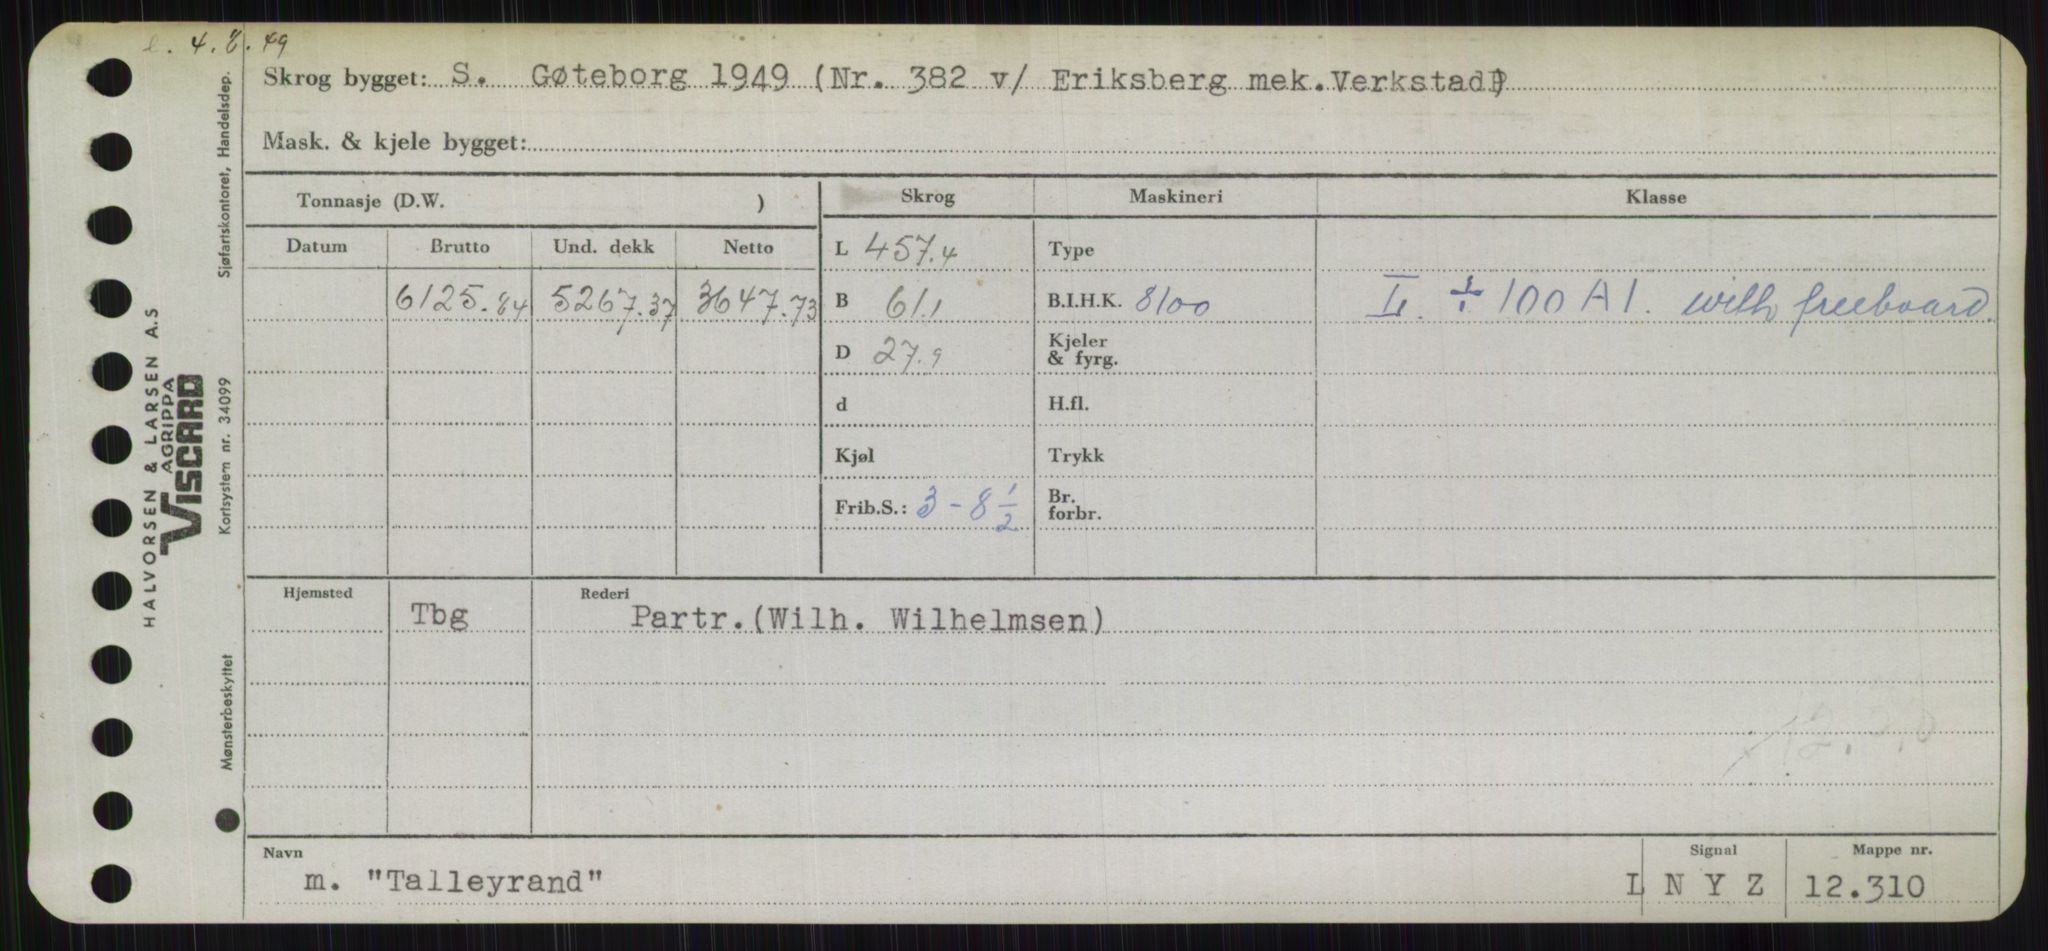 4.8.49
Skrog bygget: S. Gøteborg 1949 (Nr. 382 v/ Eriksberg mek.Verkstad)
Mask. & kjele bygget:
Tonnasje (D.W. ) Skrog Maskineri Klasse
Datum Brutto Und. dekk Netto L 457.4 Type
6125.84 5267.37 3647.73 B 61.1 B.I.H.K. 8100 L. ÷ 100 A 1. with freeboard.
D 27.9 Kjeler & fyrg.
d H.fl.
Kjøl Trykk
Frib.S.: 3 - 8 1/2 Br. forbr.
Hjemsted Rederi
Tbg Partr.(Wilh. Wilhelmsen)
12.310
Navn Signal Mappe nr.
m. "Talleyrand" L N Y Z 12.310
HALVORSEN & LARSEN A.S
AGRIPPA
VISCARD
Mønsterbeskyttet Kortsystem nr. 34099 Sjøfartskontoret, Handelsdep.